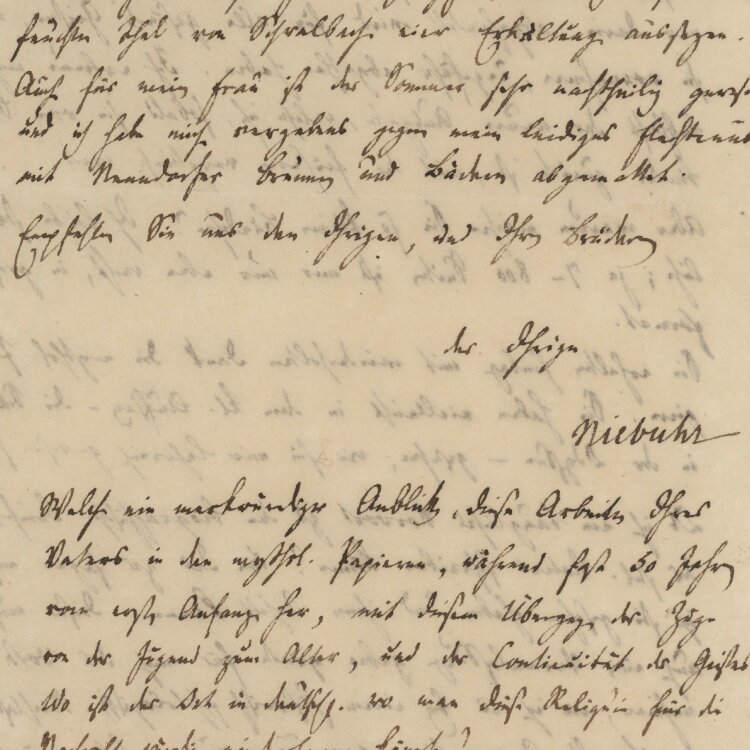 feuchte Thal von Schwalbach eine Erkältung aussetzen.
Auch für meine Frau ist der Sommer sehr nachtheilig gewesen
und ich habe mich vergebens gegen mein leidiges
mit Nenndorfer Brunnen und Bädern abgemattet.
Empfehlen Sie uns den Ihrigen, und Ihren Brüdern
der Ihrige
Niebuhr
Welch ein merkwürdiger Anblick, diese Arbeiten Ihres
Vaters in den mythol. Papieren, während fast 50 Jahren
vom ersten Anfang her, mit diesem Übergang der Züge
von der Jugend zum Alter, und der Continuität des Geistes
Wo ist der Ort in deutsch. wo man diese Reliquie für die